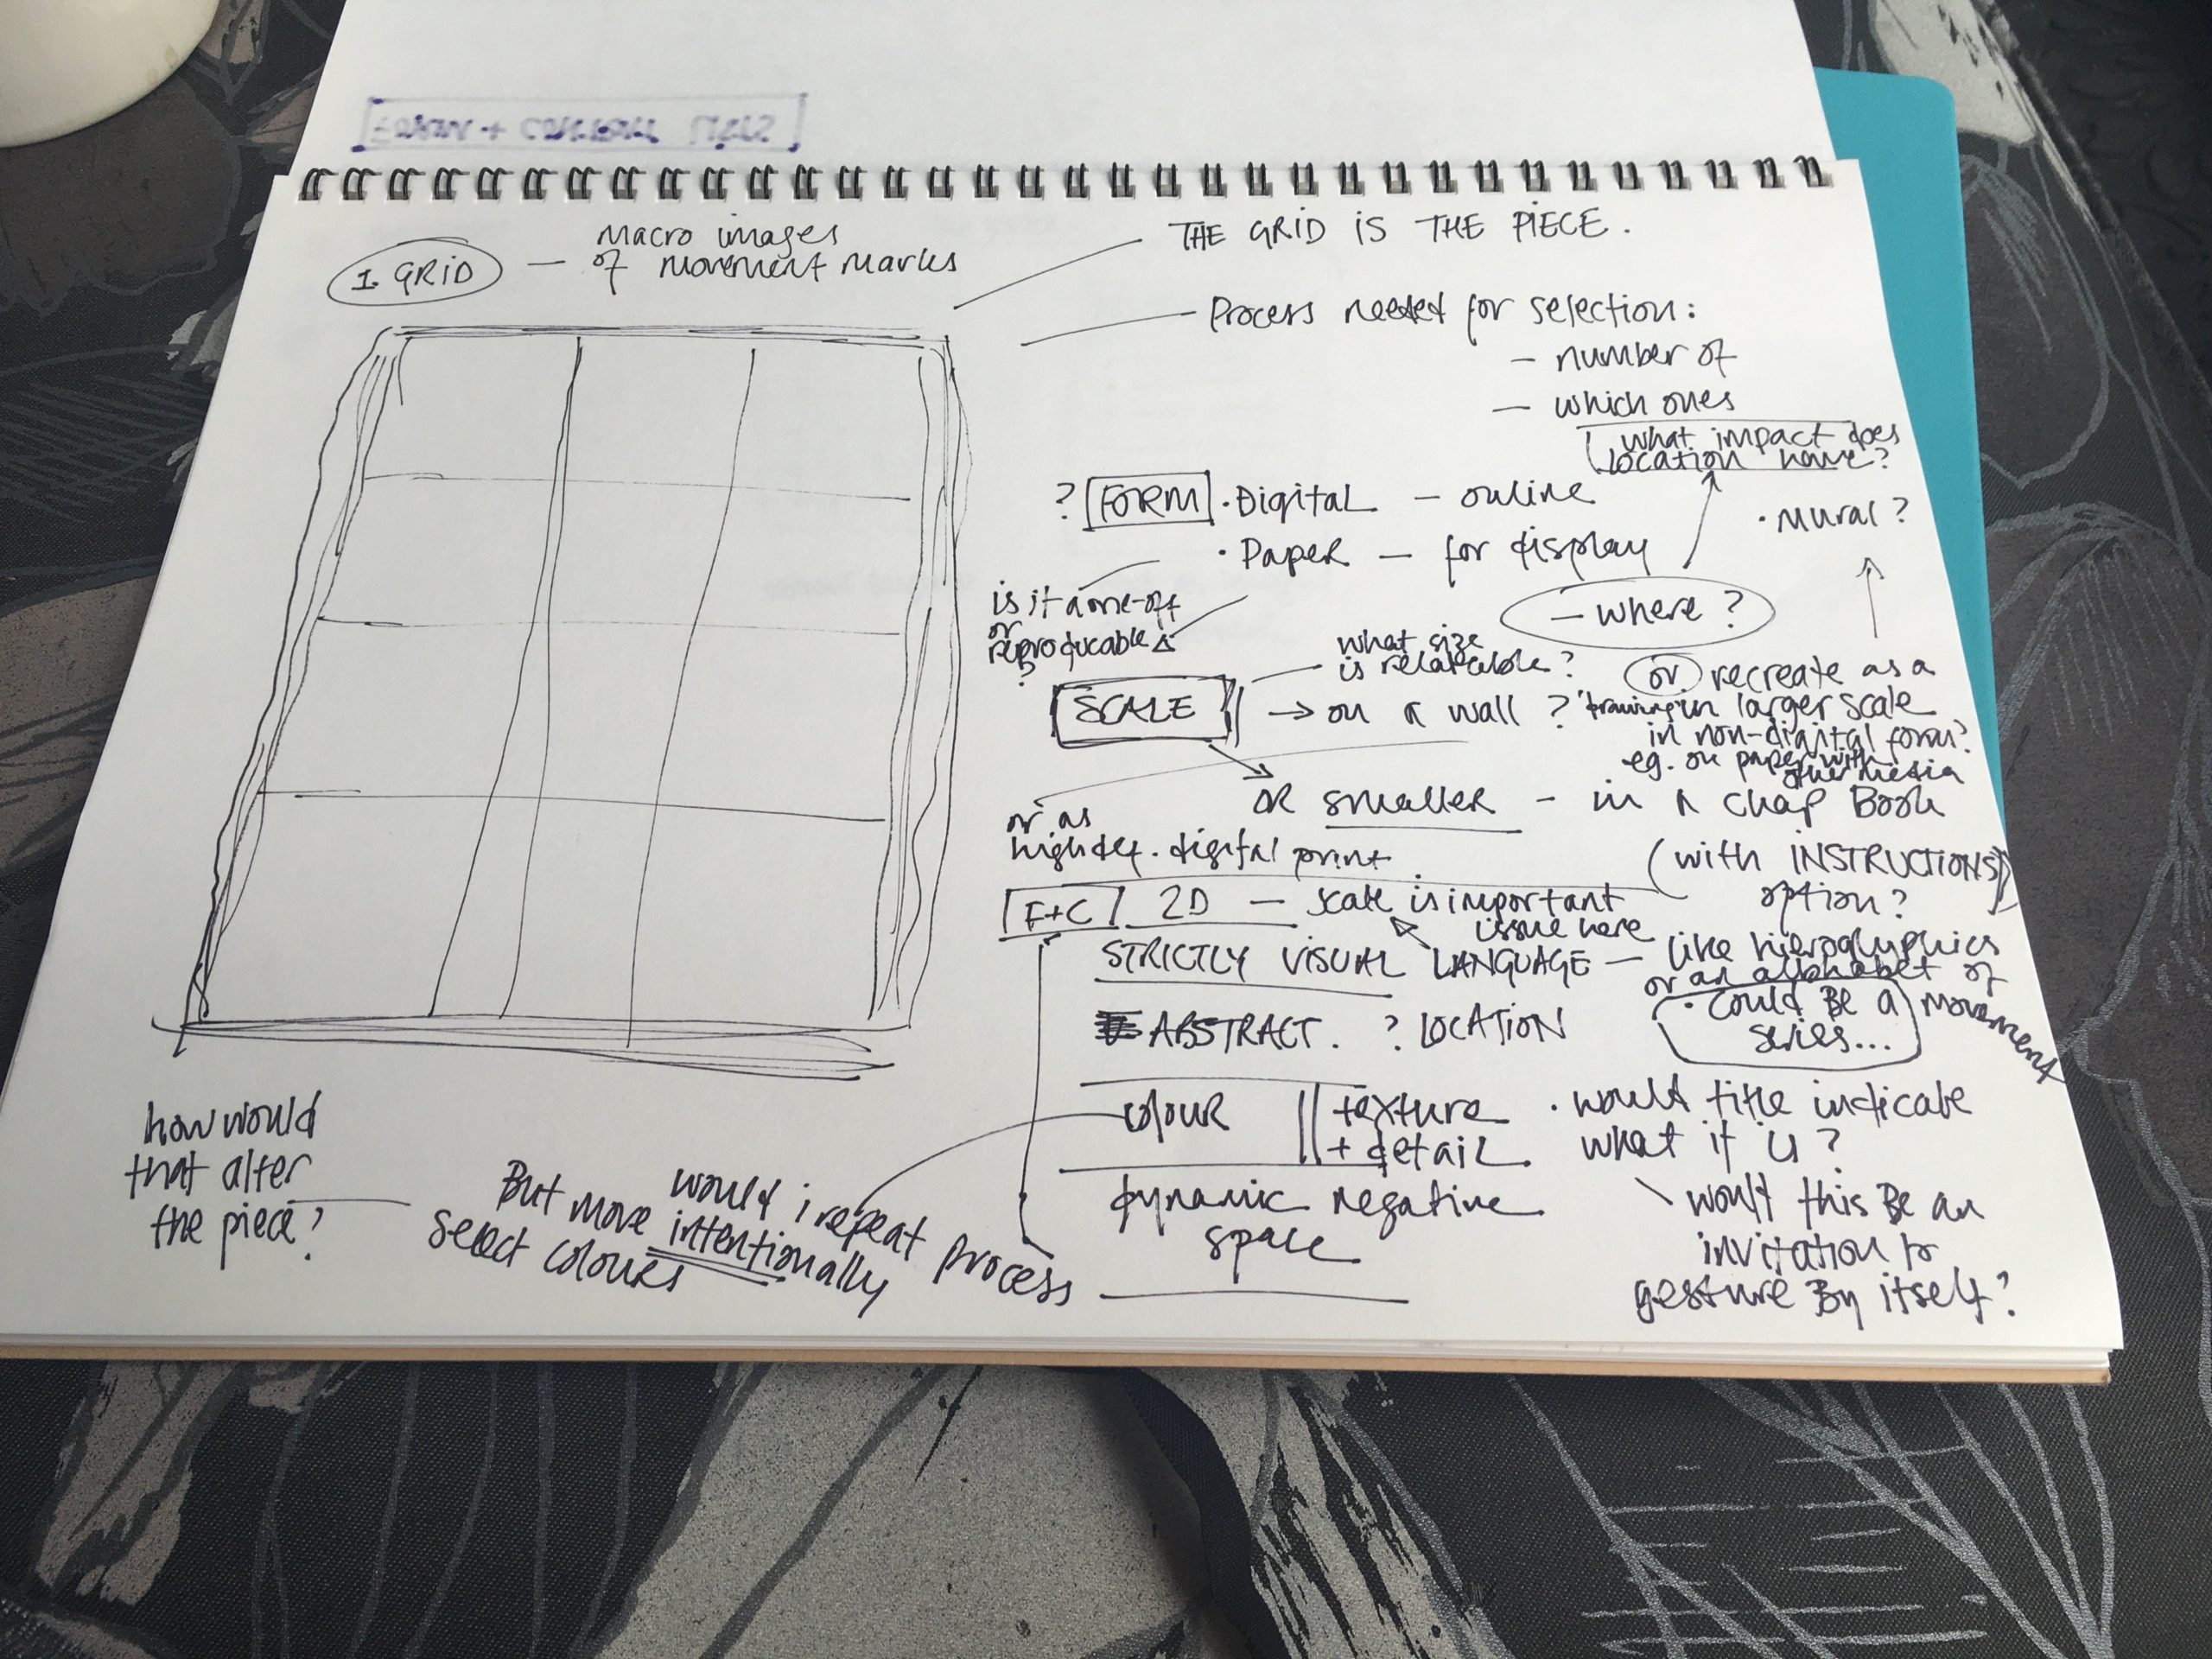 1. GRID — macro images
of movement marks
THE GRID IS THE PIECE.
Process needed for selection:
— number of
— which ones
what impact does
location have?
? FORM • Digital — online
• Paper — for display
• Mural?
— where?
is it a one-off
or
reproducable
?
SCALE
what size
is relatable?
→ on a wall?
or recreate as a
"drawing" in larger scale
in non-digital form?
eg. on paper with
other media
OR smaller — in a chap Book
(with INSTRUCTIONS)
option?
or as
high def. digital print
F+C 2D — scale is important
issue here
STRICTLY VISUAL LANGUAGE — like hieroglyphics
or an alphabet of
movement
• Could Be a
series...
ABSTRACT. ? LOCATION
colour || texture
+ detail
dynamic negative
space
• would title indicate
what it is?
would this Be an
invitation to
gesture By itself?
would i repeat process
But move intentionally
select colours
how would
that alter
the piece?